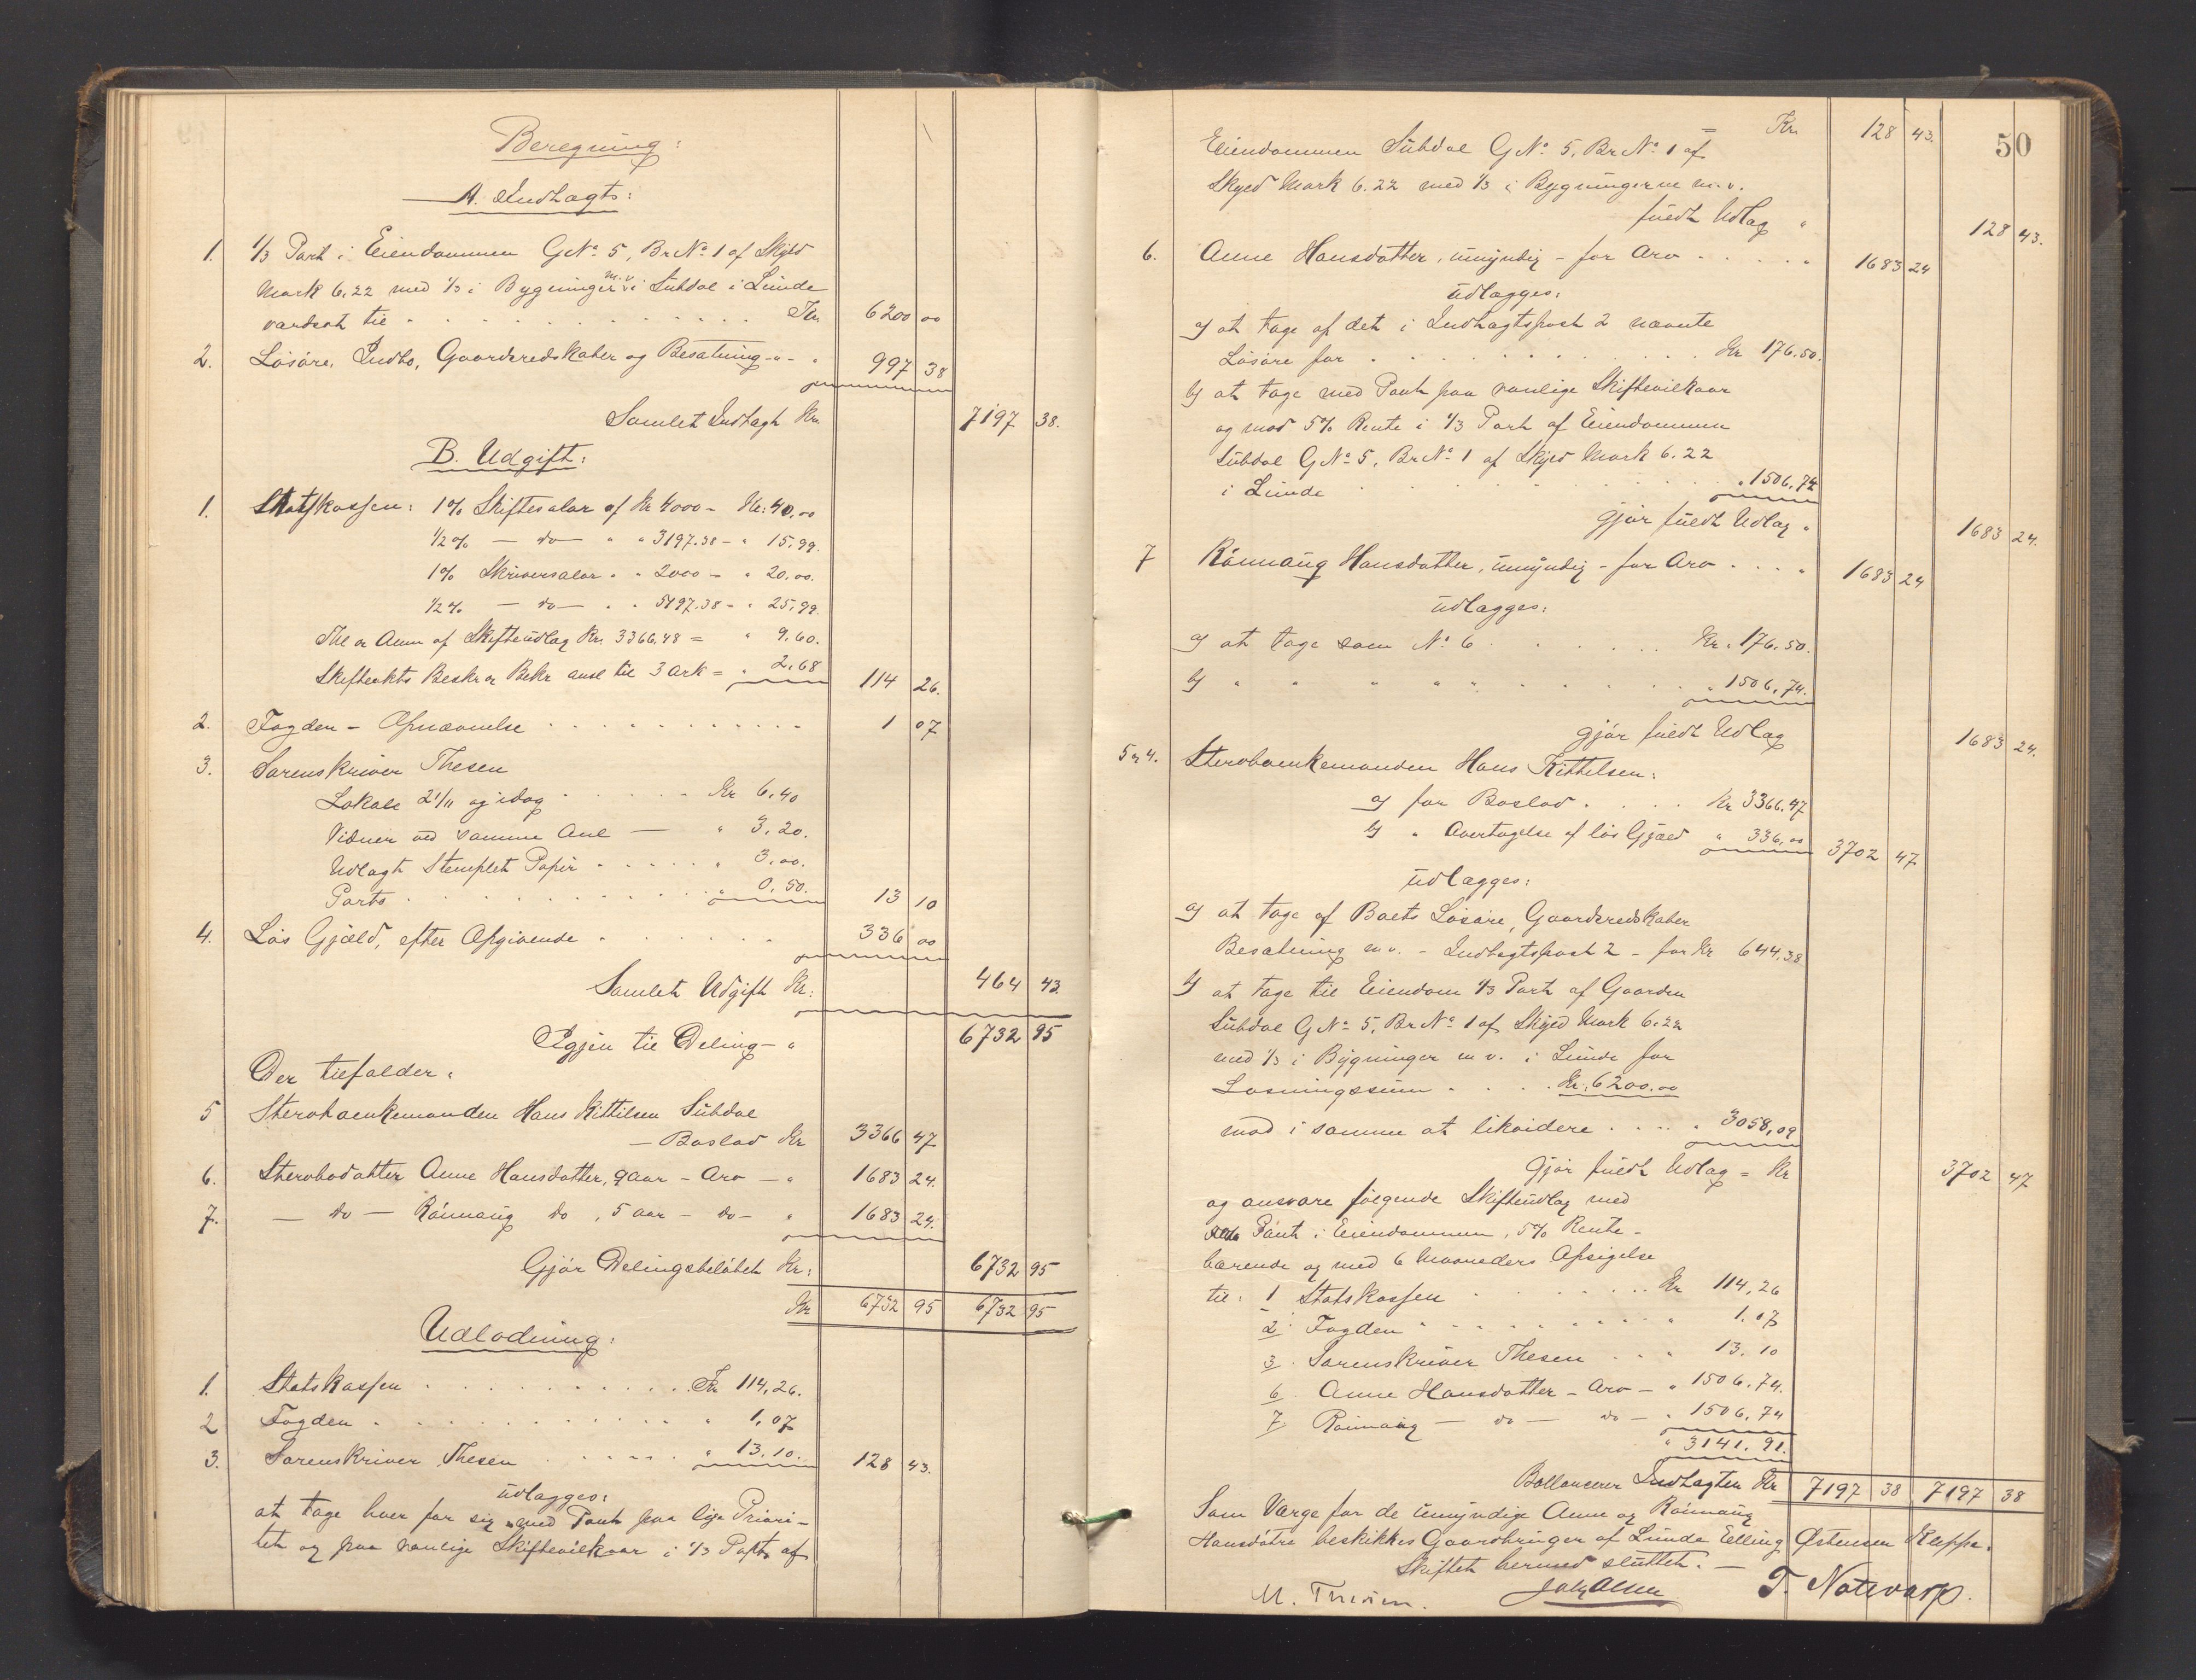 Beregning:
A. Indtægt:
1. 1/3 Part i Eiendommen GNo 5, BrNo 1 af Skyld
Mark 6.22 med 1/3 i Bygninger m.v. i Subdal i Lunde
værdsat til . . . Kr. 6200 00
2. Løsøre, Indbo, Gaardsredskaber og Besætning -"- " 997 38
Samlet Indtægt Kr. 7197 38.
B. Udgift:
1. Statskassen: 1% Skiftesalær af Kr 4000 - Kr: 40.00
1/2% — do — " " 3197.38 - " 15.99.
1% Skriversalær " " 2000 - " 20.00.
1/2% — do — " " 5197.38 = " 25.99.
Thl or Anm af Skifteudlæg Kr. 3366.48 = " 9.60.
Skifteakts Beskr or Bekr ansl til 3 Ark = " 2.68 114 26.
2. Fogden - Opnævnelse . . . 1 07
3. Sorenskriver Thesen
Lokale 21/11 og idag . . . Kr 6.40
Vidner ved samme Anl — " 3.20.
Udlagt Stemplet Papir . . . " 3.00.
Porto . . . " 0.50. 13 10
4. Løs Gjæld, efter Opgivende . . . 336 00
Samlet Udgift Kr: 464 43.
Igjen til Deling - " 6732 95
Der tilfalder:
5 Stervboenkemanden Hans Kittilsen Subdal
— Boslod Kr 3366 47
6. Stervbodatter Anne Hansdatter, 9 aar - Arv — " 1683 24.
7. — do — Rønnaug do, 5 aar - do - " 1683 24.
Gjør Delingsbeløbet Kr: 6732 95
Kr 6732 95 6732 95
Udlodning:
1. Statskassen . . . Kr 114,26.
2 Fogden . . . " 1,07
3. Sorenskriver Thesen . . . " 13.10. 128 43.
udlægges:
at tage hver for sig med Pant paa lige Priori-
tet og paa vanlige Skiftevilkaar i 1/3 Part af
50
Kr. 128 43.
Eiendommen Subdal GNo 5, BrNo 1 af
Skyld Mark 6.22 med 1/3 i Bygningerne m.v.
fuldt Udlæg " 128 43.
6. Anne Hansdatter, umyndig - for Arv . . . " 1683 24
udlægges:
a) at tage af det i Indtægtspost 2 nævnte
Løsøre for . . . Kr 176.50.
b) at tage med Pant paa vanlige Skiftevilkaar
og mod 5% Rente i 1/3 Part af Eiendommen
Subdal GNo 5, BrNo 1 af Skyld Mark 6.22
i Lunde . . . " 1506,74
gjør fuldt Udlæg " 1683 24.
7 Rønnaug Hansdatter, umyndig - for Arv . . . " 1683 24
udlægges:
a) at tage som No 6 . . . Kr. 176.50.
b) " " " " " . . . " 1506,74.
gjør fuldt Udlæg 1683 24.
5 og 4. Stervboenkemanden Hans Kittelsen:
a) for Boslod . . . Kr 3366.47
b) " Overtagelse af løs Gjæld " 336,00 3702 47
udlægges:
a) at tage af Boets Løsøre, Gaardsredskaber
Besætning m.v. - Indtægtspost 2 - for Kr 644.38
b) at tage til Eiendom 1/3 Part af Gaarden
Subdal GNo 5, BrNo 1 af Skyld Mark 6.22
med 1/3 i Bygninger m.v. i Lunde for
Løsningssum . . . Kr. 6200.00
mod i samme at likvidere . . . " 3058,09
Gjør fuldt Udlæg = Kr 3702 47
og ansvare følgende Skifteudlæg med
Pant i Eiendommen, 5% Rente-
bærende og med 6 Maaneders Opsigelse
til: 1 Statskassen . . . Kr 114,26
2. Fogden . . . " 1.07
3. Sorenskriver Thesen . . . " 13.10
6. Anne Hansdatter - Arv - " 1506.74.
7. Rønnaug — do — do — " 1506,74
" 3141.91.
Ballancerer Indtægten Kr 7197 38 7197 38
Som Værge for de umyndige Anne og Rønnaug
Hansdøtre beskikkes Gaardbruger af Lunde Elling Østensen Kleppe.
Skiftet hermed sluttet. —
T. Notevarp.